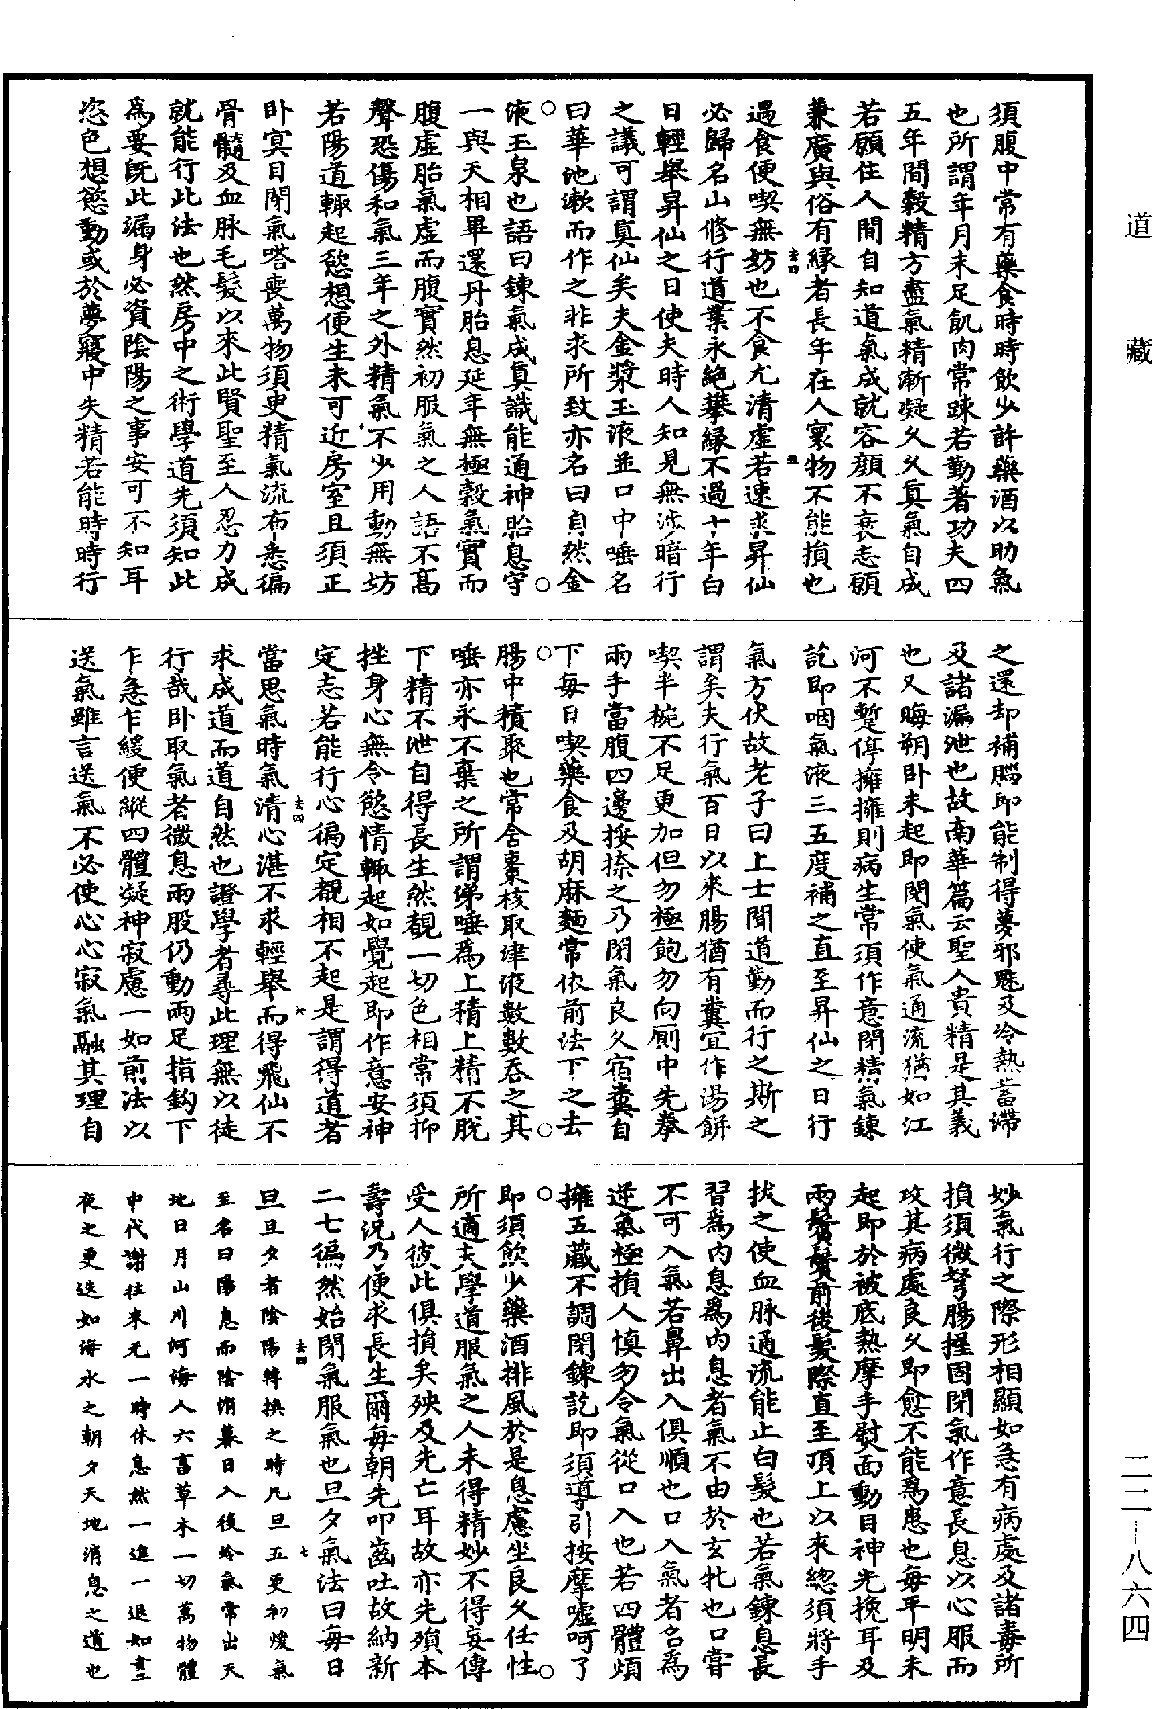 道藏
二二—八六四
須腹中常有藥食時時飲少許藥酒以助氣
也所謂年月未足飢肉常踈若勤著功夫四
五年間穀精方盡氣精漸凝久久真氣自成
若願住人間自知道氣成就容顏不衰志願
兼廣與俗有緣者長年在人寰物不能損也
過食便喫無妨也不食尤清虛若速求昇仙
必歸名山修行道業永絕攀緣不過十年白
日輕舉昇仙之日使夫時人知見無涉暗行
之議可謂真仙矣夫金漿玉液並口中唾名
曰華池漱而作之非求所致亦名曰自然金
液玉泉也語曰鍊氣成真識能通神胎息守
一與天相畢還丹胎息延年無極穀氣實而
腹虛胎氣虛而腹實然初服氣之人語不高
聲恐傷和氣三年之外精氣不少用動無妨
若陽道輒起慾想便生未可近房室且須正
卧冥目閉氣嗒喪萬物須臾精氣流布悉徧
骨髓及血脉毛髮以來此賢聖至人忍力成
就能行此法也然房中之術學道先須知此
為要既此漏身必資陰陽之事安可不知耳
恣色想慾動或於夢寢中失精若能時時行
之還却補腦即能制得夢邪魅及冷熱蓄滯
及諸漏泄也故南華篇云聖人貴精是其義
也又晦朔卧未起即閉氣使氣通流猶如江
河不蹔停擁擁則病生常須作意閉精氣鍊
訖即咽氣液三五度補之直至昇仙之日行
氣方伏故老子曰上士聞道勤而行之斯之
謂矣夫行氣百日以來腸猶有糞宜作湯餅
喫半椀不足更加但勿極飽勿向厠中先拳
兩手當腹四邊按捺之乃閉氣良久宿糞自
下每日喫藥食及胡麻麵常依前法下之去
腸中積聚也常含棗核取津液數數吞之其
唾亦永不棄之所謂涕唾為上精上精不脫
下精不泄自得長生然覩一切色相常須抑
挫身心無令慾情輒起如覺起即作意安神
定志若能行心徧定覩相不起是謂得道者
當思氣時氣清心湛不求輕舉而得飛仙不
求成道而道自然也證學者尋此理無以徒
行哉卧取氣者微息兩股仍動兩足指鈎下
乍急乍緩便縱四體凝神寂慮一如前法以
送氣雖言送氣不必使心心寂氣融其理自
妙氣行之際形相顯如急有病處及諸毒所
損須微弩腸握固閉氣作意長息以心服而
攻其病處良久即愈不能為患也每平明未
起即於被底熱摩手熨面動目神光挽耳及
兩鬢鬢前後髮際直至頂上以來總須將手
拔之使血脉通流能止白髮也若氣鍊息長
習為內息為內息者氣不由於玄牝也口嘗
不可入氣若鼻出入俱順也口入氣者名為
逆氣極損人慎勿令氣從口入也若四體煩
擁五藏不調閉鍊訖即須導引按摩噓呵了
即須飲少藥酒排風於是息慮坐良久任性
所適夫學道服氣之人未得精妙不得妄傳
受人彼此俱損矣殃及先亡耳故亦先殞本
壽況乃便求長生爾每朝先叩齒吐故納新
二七徧然始閉氣服氣也旦夕氣法曰每日
旦旦夕者陰陽轉換之時凡旦五更初煖氣
至名曰陽息而陰消暮日入後冷氣常出天
地日月山川河海人六畜草木一切萬物體
中代謝往來无一時休息然一進一退如晝
夜之更迭如海水之朝夕天地消息之道也